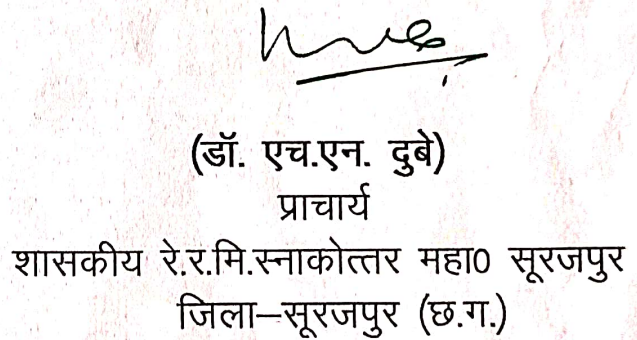 (डॉ. एच.एन. दुबे)
प्राचार्य
शासकीय रे.र.मि.स्नाकोत्तर महा0 सूरजपुर
जिला–सूरजपुर (छ.ग.)